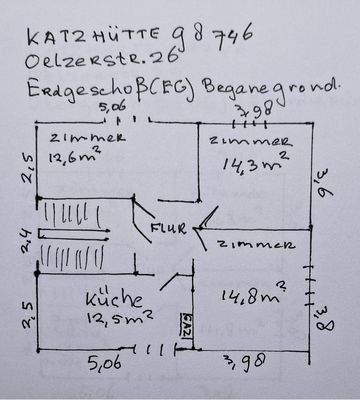 KATZHÜTTE 98 746
OELZERSTR. 26
ERDGESCHOß(EG) BEGANEGROND.
5,06
3,98
ZIMMER
12,6m²
ZIMMER
14,3m²
2,5
3,6
FLUR
2,4
ZIMMER
KÜCHE
12,5m²
14,8m²
2,5
3,8
5,06
3,98